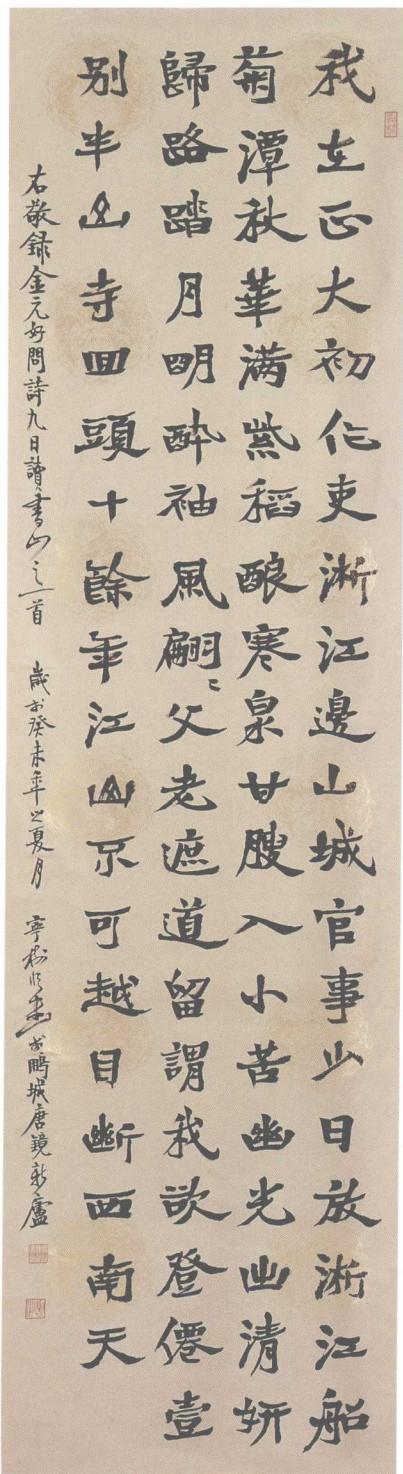 我在正大初作吏淅江邊山城官事少日放淅江船
菊潭秋華满紫稻酿寒泉甘腴入小苦幽光出清妍
歸路踏月明醉袖風翩〻父老遮道留謂我欲登僊壹
别半山寺回頭十餘年江山不可越目斷西南天
右敬録金元好問詩九日讀書山之一首 歲於癸未年之夏月 寧 書於鵬城唐鏡新廬